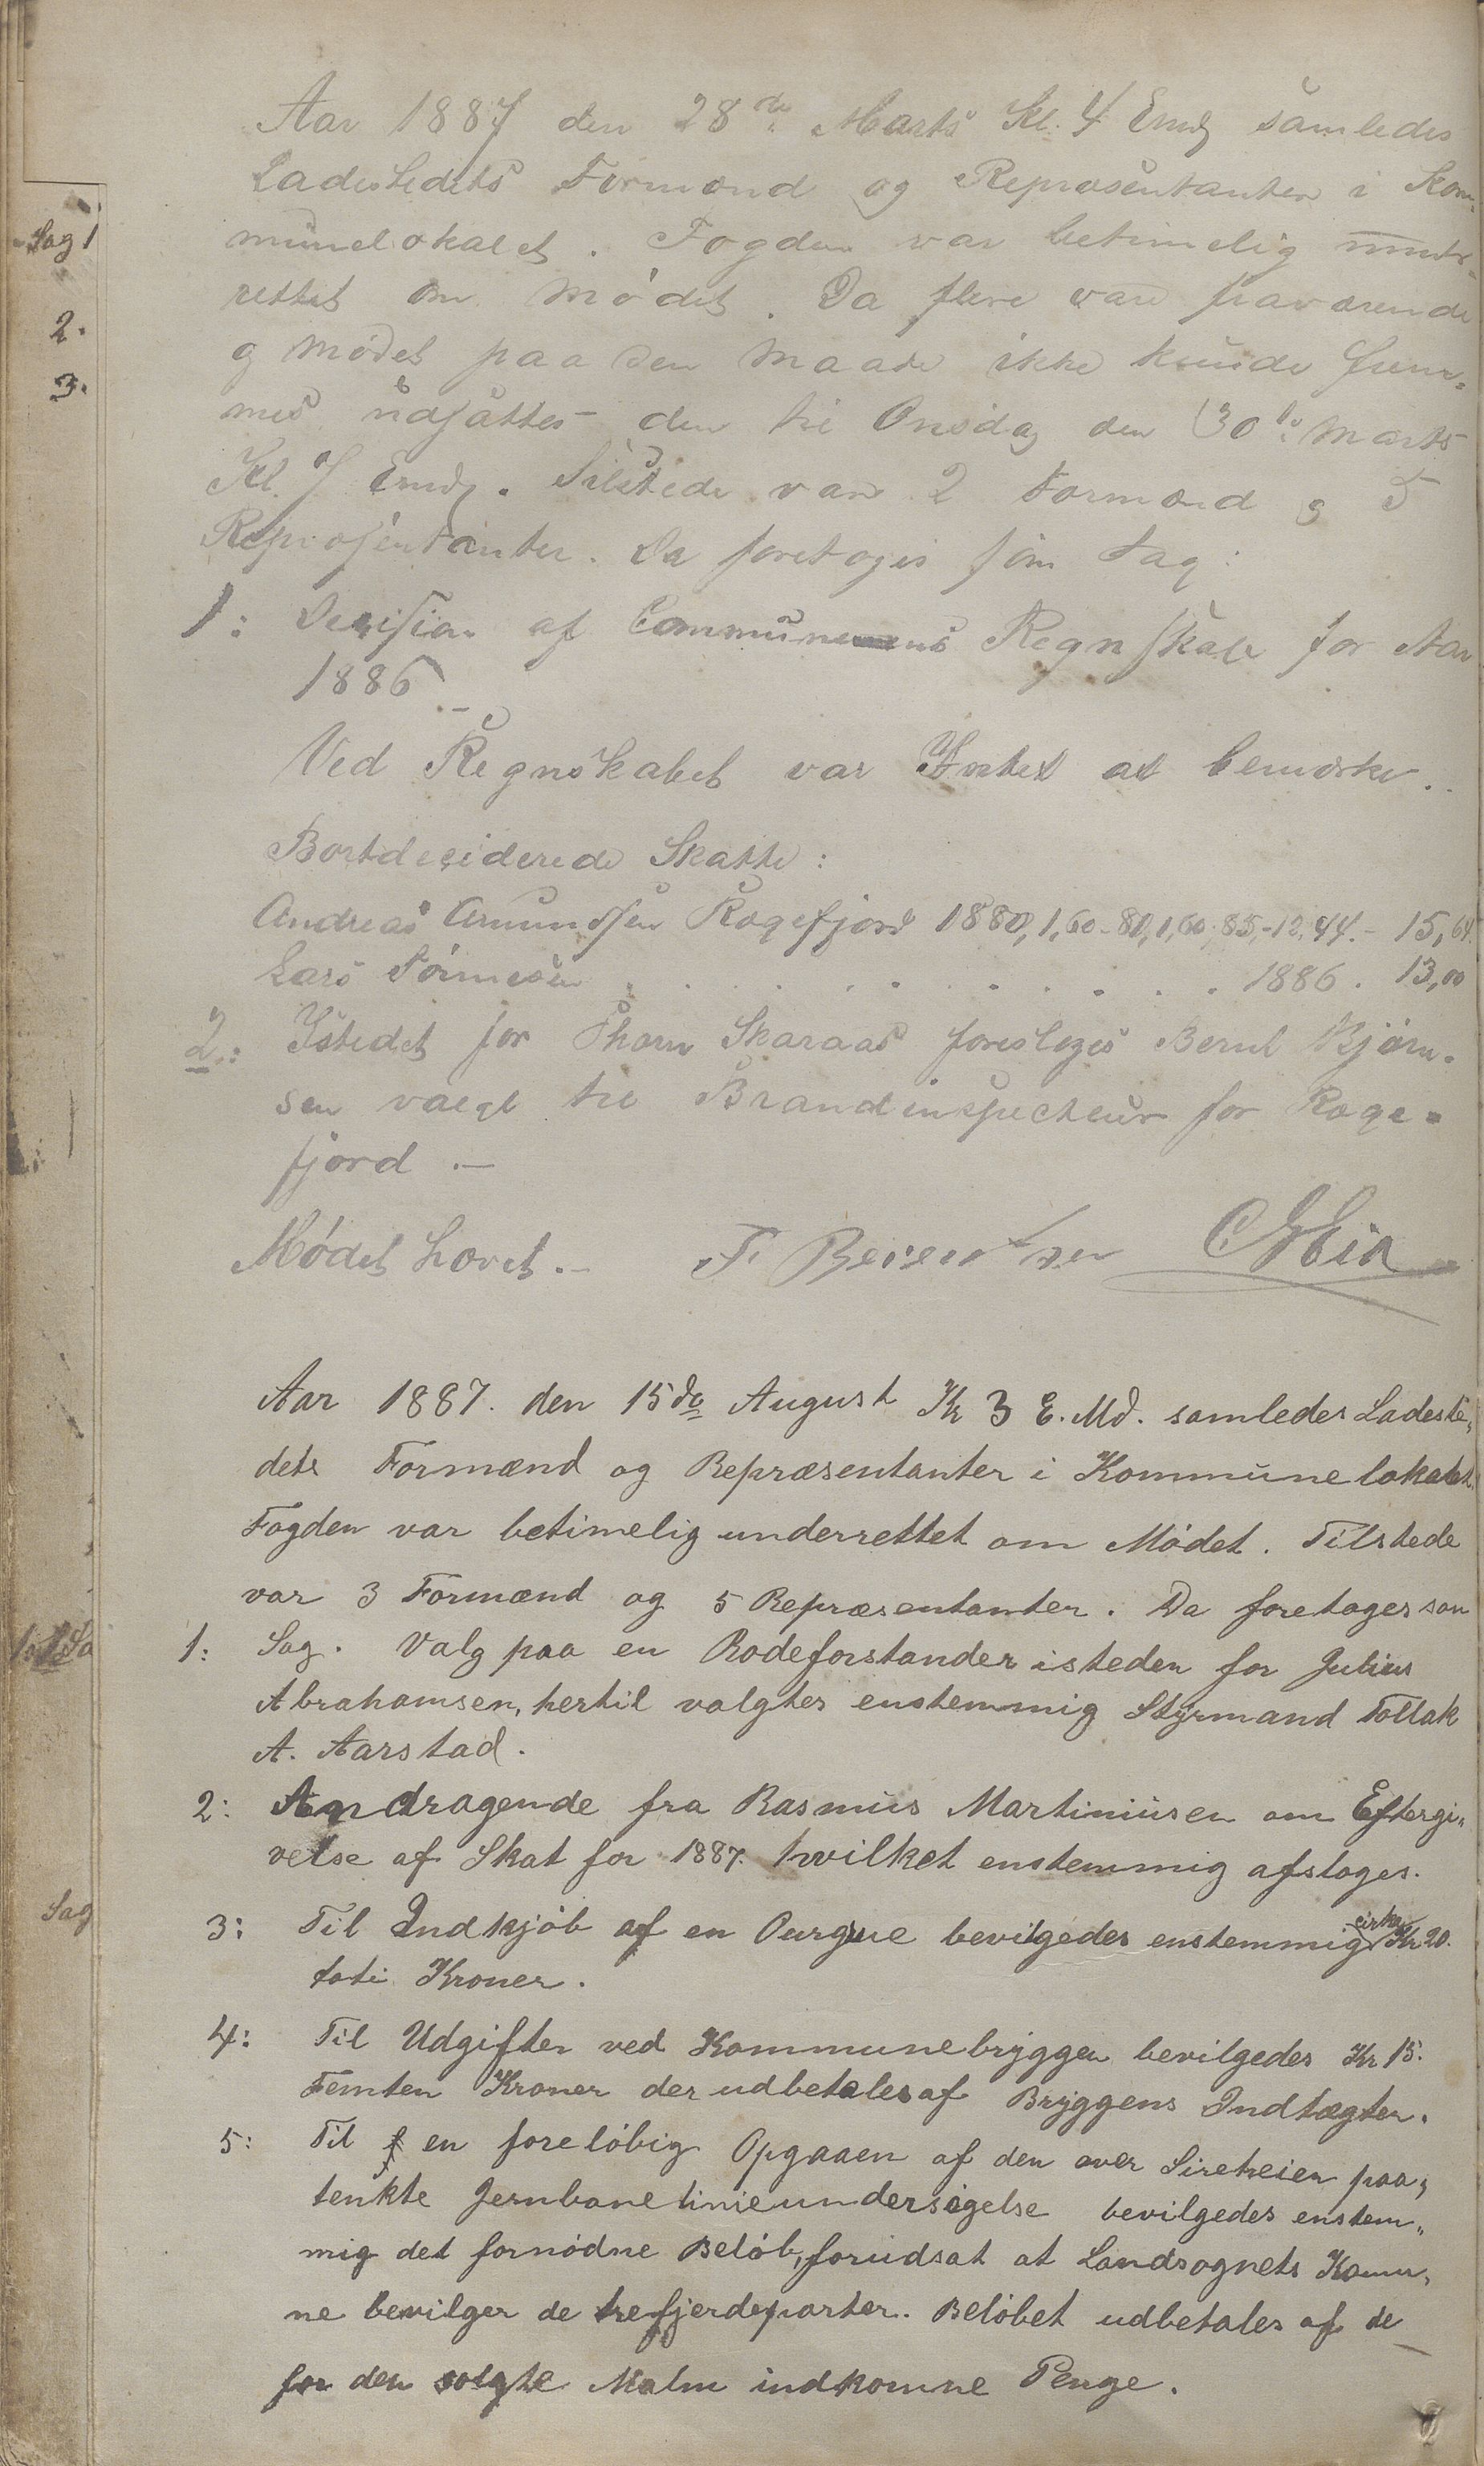 Aar 1887 den 28de Marts Kl. 4 Emdg samledes
Ladestedets Formænd og Repræsentanter i Kom-
munelokalet. Fogden var betimelig under-
rettet om Mødet. Da flere vare fraværende
og Mødet paa den Maade ikke kunde frem-
mes udsattes den til Onsdag den 30te Marts
Kl. 7 Emdg. Tilstede var 2 Formænd og 5
Repræsentanter. Da foretoges som Sag:
1: Decision af Communens Regnskab for Aar
1886
Ved Regnskabet var Intet at bemærke.
Bortdesiderede Skatte:
Andreas Amundsen Rægefjord 1880, 1,60 - 81, 1,60. 85, -12,44. - 15,64
Lars Tønnesen . . . . . . . . . 1886. 13,00
2: Istedet for Thorn Skaraas foresloges Bernt Bjørn-
sen valgt til Brandinspecteur for Ræge-
fjord.-
Mødet hævet.- F. Berentsen
Aar 1887. den 15de August Kl 3 E. Md. samledes Ladeste-
dets Formænd og Repræsentanter i Kommunelokalet.
Fogden var betimelig underrettet om Mødet. Tilstede
var 3 Formænd og 5 Repræsentanter. Da foretoges som
1: Sag. Valg paa en Rodeforstander isteden for Julius
Abrahamsen, hertil valgtes enstemmig Styrmand Tollak
A. Aarstad.
2: Andragende fra Rasmus Martiniusen om Eftergi-
velse af Skat for 1887. hvilket enstemmig afsloges.
3: Til Indkjöb af en bevilgedes enstemmig cirka Kr 20.
Kroner.
4: Til Udgifter ved Kommunebryggen bevilgedes Kr 15.
Femten Kroner der udbetales af Bryggens Indtægter.
5: Til en foreløbig Opgaaen af den over Sireheien paa-
tenkte Jernbanelinieundersøgelse bevilgedes enstem-
mig det fornødne Beløb, forudsat at Landsognets Kommu-
ne bevilger de trefjerdeparter. Beløbet udbetales af de
for den solgte Malm indkomne Penge.
Sag 1
2.
3.
Sag